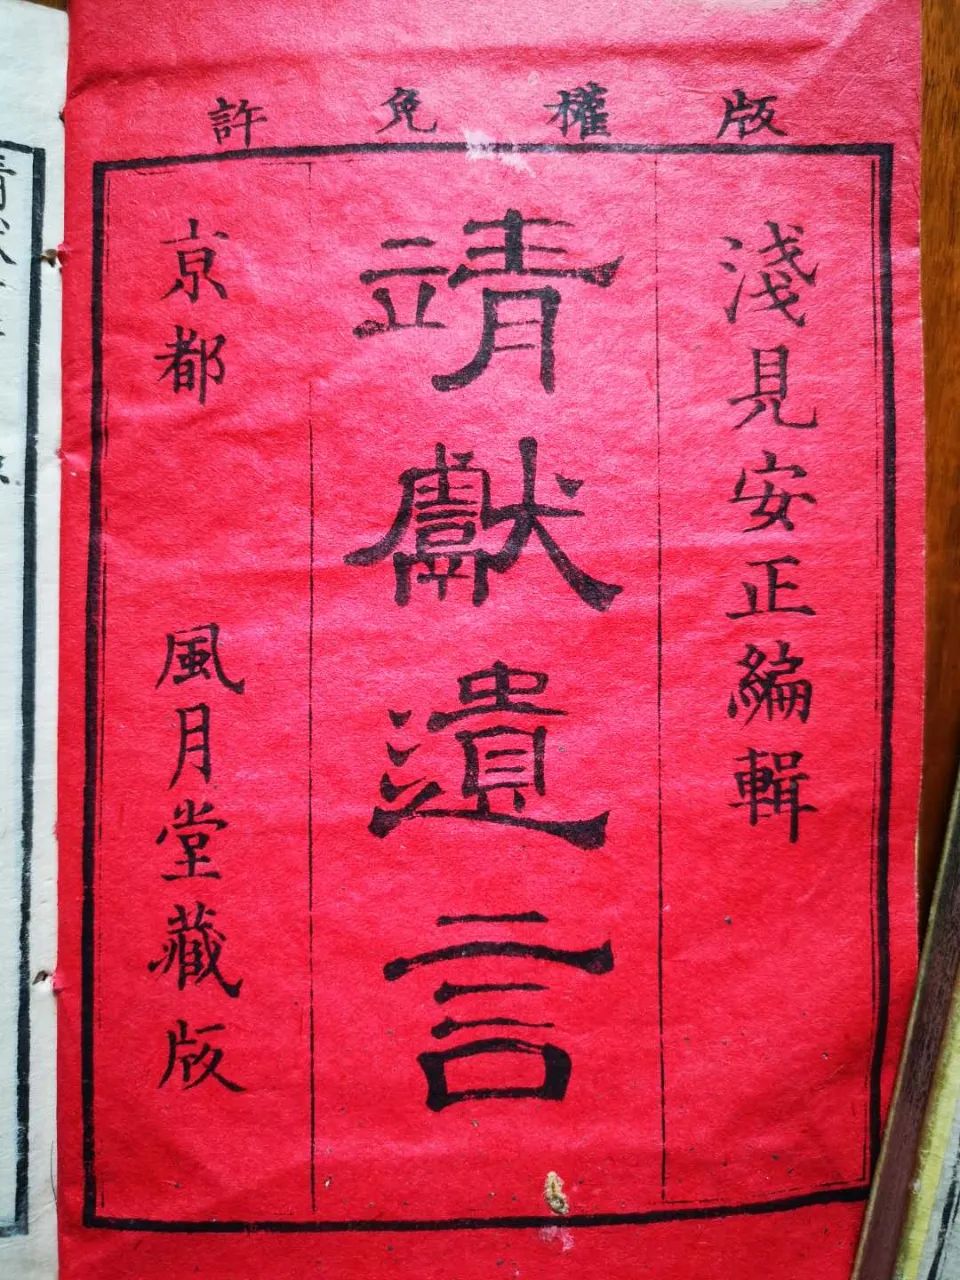 版權免許
淺見安正編輯
靖獻遺言
京都 風月堂藏版